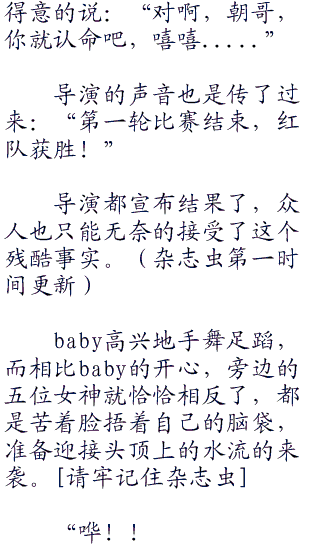 得意的说：“对啊，朝哥，
你就认命吧，嘻嘻.....”
导演的声音也是传了过
来：“第一轮比赛结束，红
队获胜！”
导演都宣布结果了，众
人也只能无奈的接受了这个
残酷事实。（杂志虫第一时
间更新）
baby高兴地手舞足蹈，
而相比baby的开心，旁边的
五位女神就恰恰相反了，都
是苦着脸捂着自己的脑袋，
准备迎接头顶上的水流的来
袭。[请牢记住杂志虫]
“哗！！